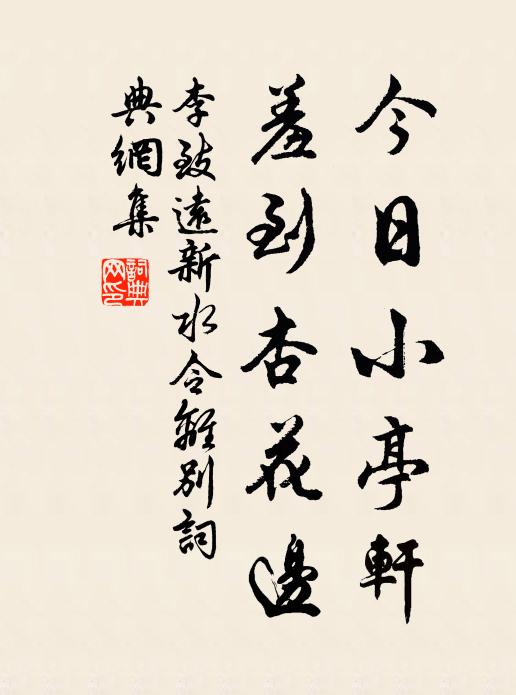 今日小亭軒
羞到杏花邊
李致遠新水令離別詞
典網集
詞典網印